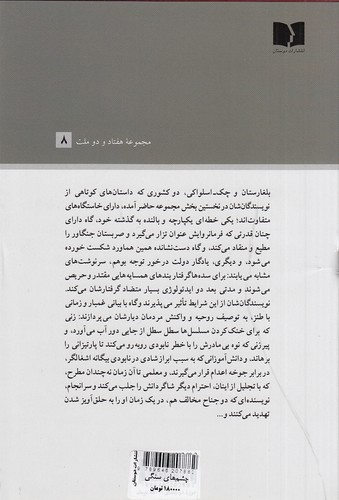 انتشارات دوستان
مجموعهٔ هفتاد و دو ملت ۸
بلغارستان و چک‌اسلواکی، دو کشوری که داستان‌های کوتاهی از
نویسندگان‌شان در نخستین بخش مجموعه حاضر آمده، دارای خاستگاه‌های
متفاوت‌اند: یکی خطه‌ای یکپارچه و بالنده به گذشته خود، گاه دارای
چنان قدرتی که فرمانروایش عنوان تزار می‌گیرد و صربستان جنگاور را
مطیع و منقاد می‌کند، و گاه دست‌نشانده همین هماورد شکست خورده
می‌شود، و دیگری، یادگار دولت درخور توجه بوهم، سرنوشت‌های
مشابه می‌یابند: برای سده‌ها گرفتار بندهای همسایه‌هایی مقتدر و حریص
می‌شوند و مدتی بعد دو ایدئولوژی بسیار متضاد گرفتارشان می‌کند.
نویسندگان‌شان از این شرایط تأثیر می‌پذیرند و گاه با بیانی غمبار و زمانی
با طنز، به توصیف روحیه و واکنش مردمان دیارشان می‌پردازند: زنی
که برای خنک‌کردن مسلسل‌ها سطل سطل از جایی دور آب می‌آورد، و
پیرزنی که نوه بی‌مادرش را با خطر نابودی روبه‌رو می‌کند تا پارتیزانی را
برهاند، و دانش‌آموزانی که به سبب ابراز شادی در نابودی بیگانه اشغالگر،
در برابر جوخه اعدام قرار می‌گیرند. و معلمی تا آن زمان نه‌چندان مطرح،
که با تجلیل از اینان، احترام دیگر شاگردانش را جلب می‌کند و سرانجام،
نویسنده‌ای که دو جناح مخالف هم، در یک زمان او را به حلق‌آویز شدن
تهدید می‌کنند و...
انتشارات دوستان
چشم‌های سنگی
۱۸۰۰۰۰ تومان